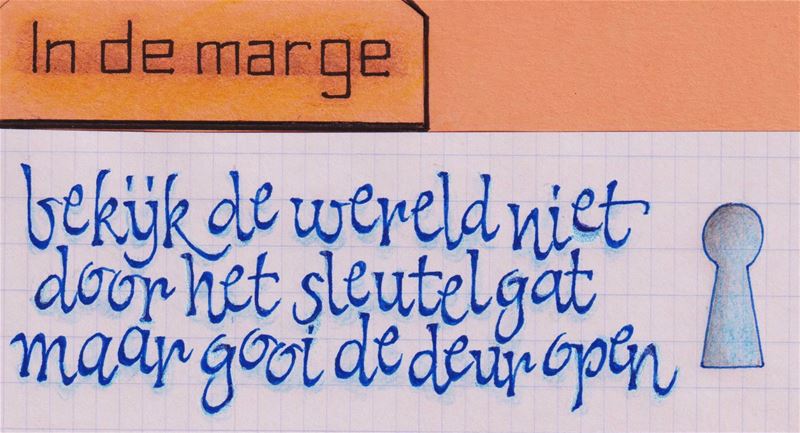 In de marge
bekijk de wereld niet
door het sleutelgat
maar gooi de deur open